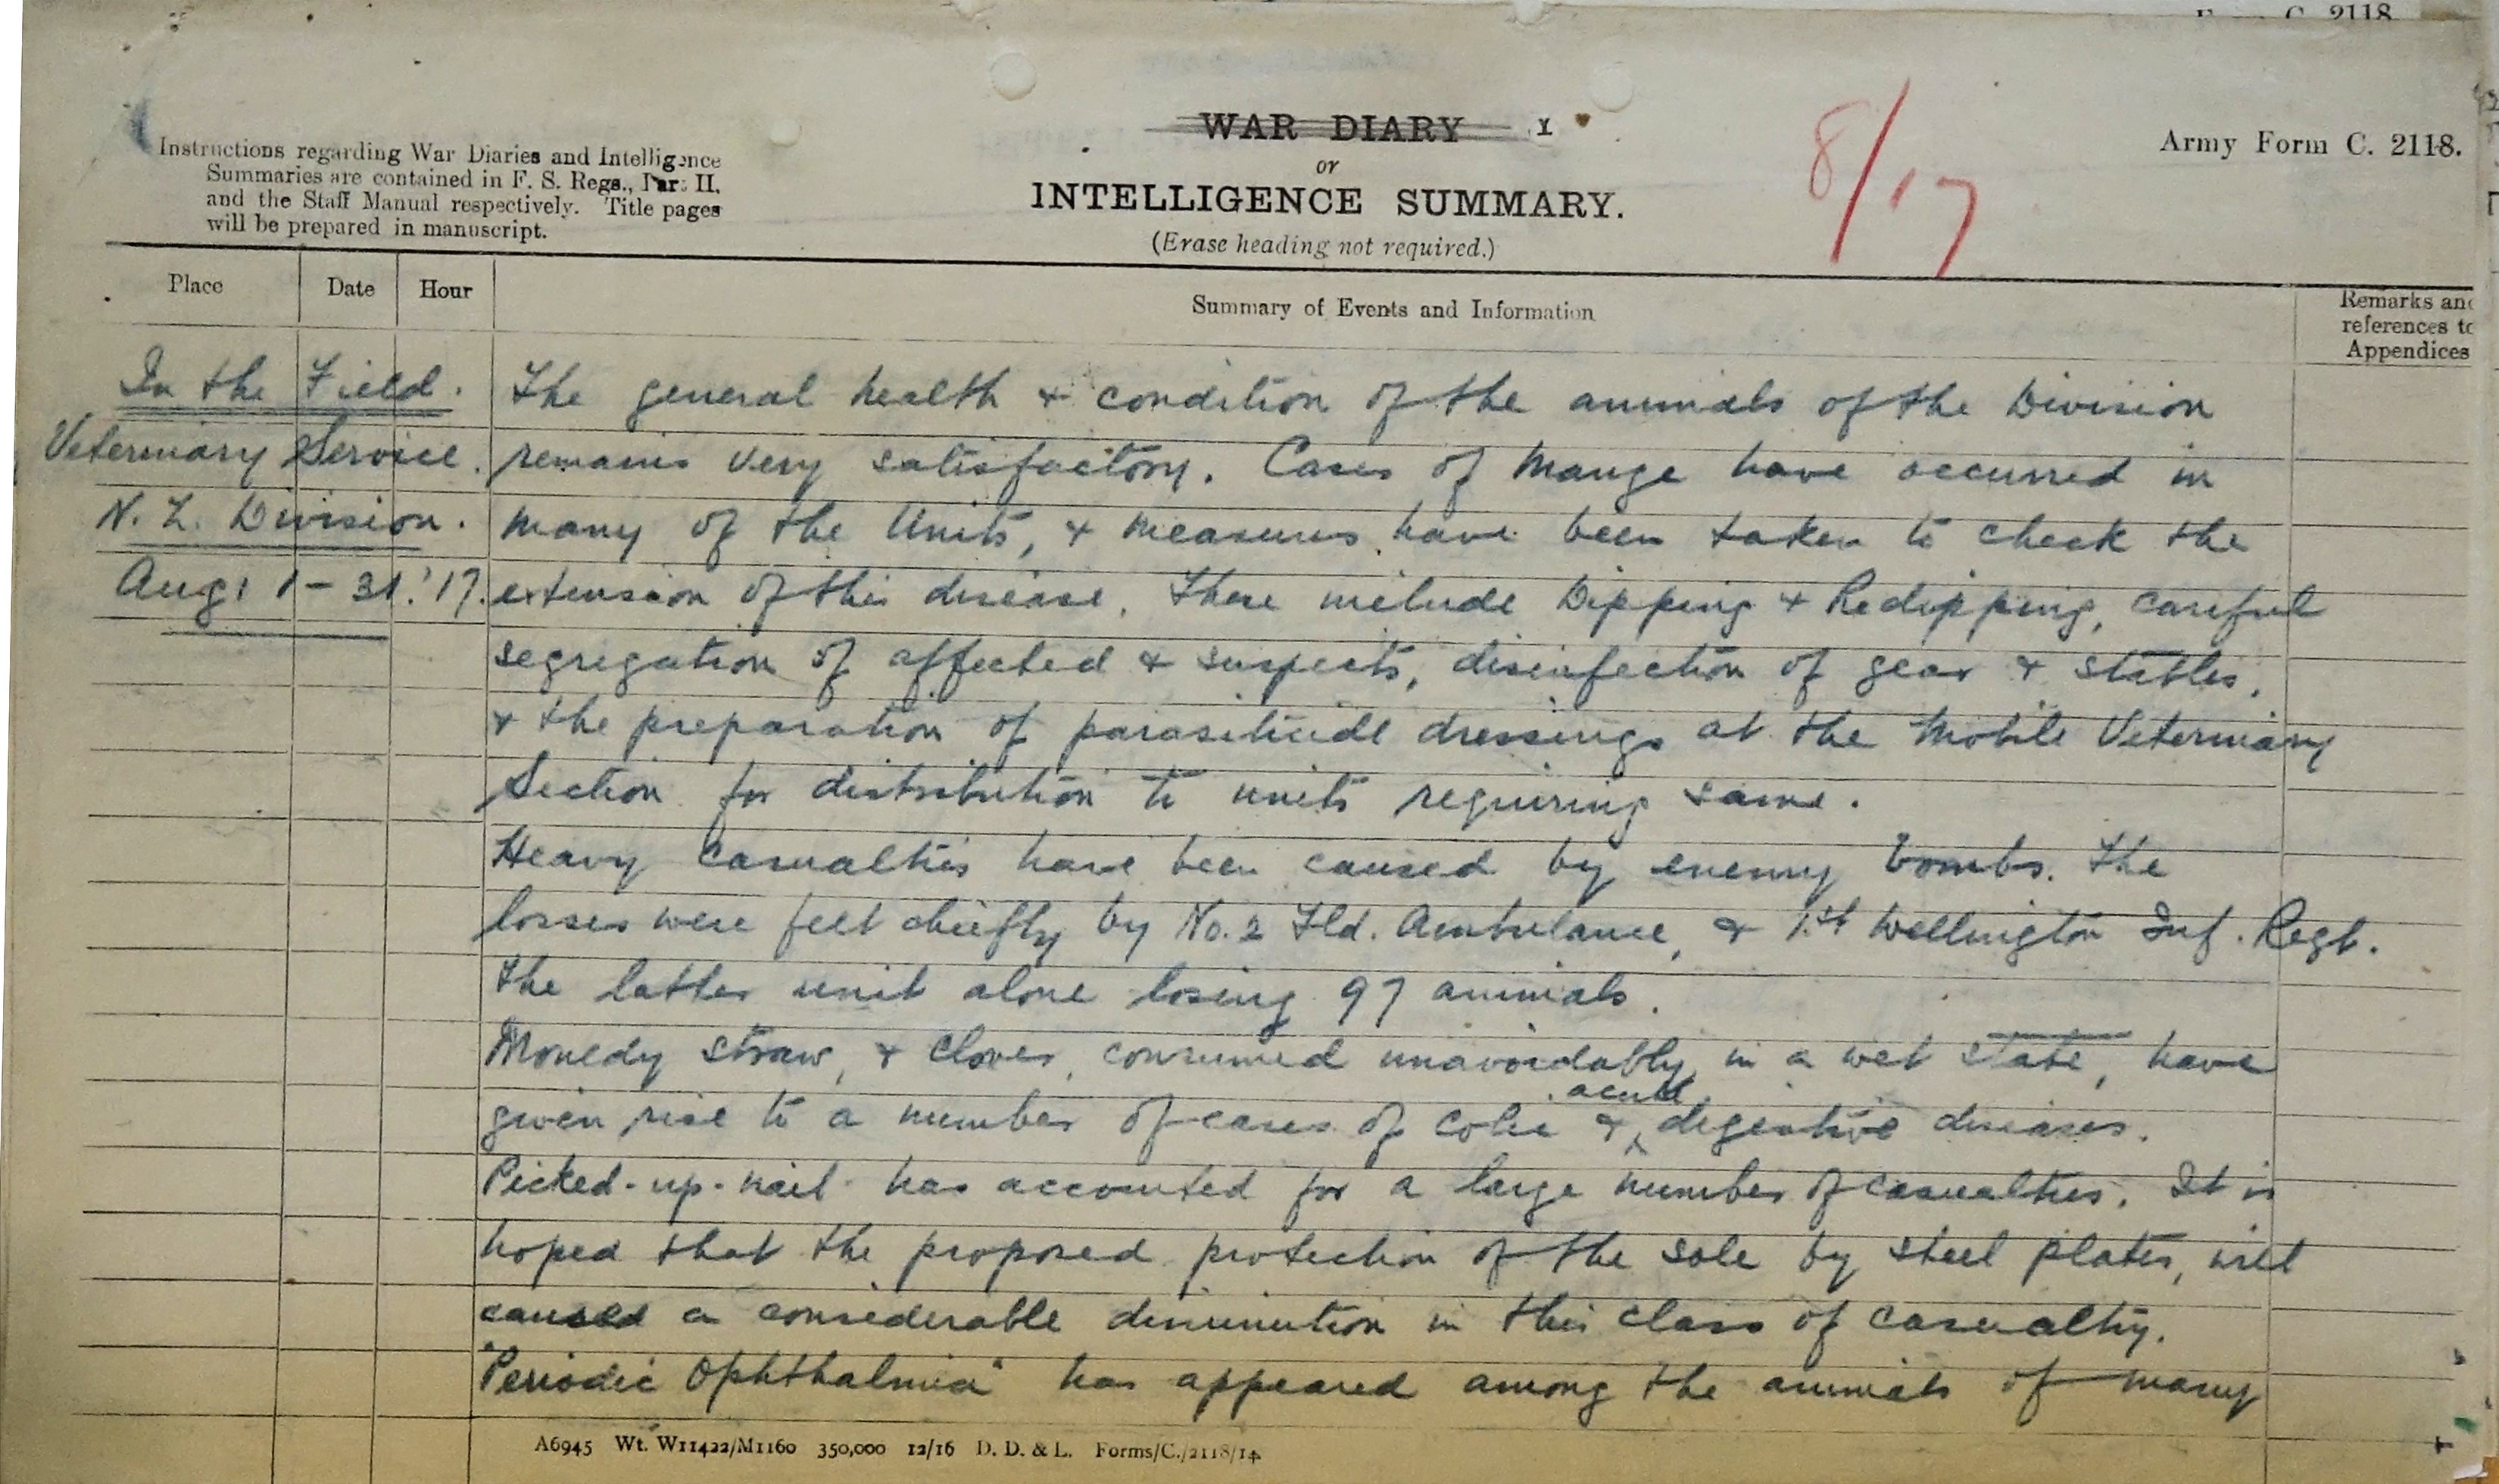 Form C. 2118
8/17
Army Form C. 2118.
WAR DIARY
or
INTELLIGENCE SUMMARY.
(Erase heading not required.)
Instructions regarding War Diaries and Intelligence
Summaries are contained in F. S. Regs., Part II.
and the Staff Manual respectively. Title pages
will be prepared in manuscript.
Place Date Hour Summary of Events and Information Remarks and
references to
Appendices
In the Field. The general health & condition of the animals of the Division
Veterinary Service. remains very satisfactory. Cases of Mange have occurred in
N. Z. Division. many of the Units, & measures have been taken to check the
Aug: 1 - 31. '17. extension of this disease. These include Dipping & Redipping, careful
segregation of affected & suspects, disinfection of gear & stables,
& the preparation of parasiticide dressings at the Mobile Veterinary
Section for distribution to units requiring same.
Heavy casualties have been caused by enemy bombs. The
losses were felt chiefly by No. 2 Fld. Ambulance, & 1st Wellington Inf. Regt.
the latter unit alone losing 97 animals.
Mouldy straw, & clover, consumed unavoidably in a wet state, have
given rise to a number of cases of colic & acute digestive diseases.
Picked-up-nail has accounted for a large number of casualties. It is
hoped that the proposed protection of the sole by steel plates, will
caused a considerable diminution in this class of casualty.
"Periodic Ophthalmia" has appeared among the animals of many
A6945 Wt. W11422/M1160 350,000 12/16 D. D. & L. Forms/C./2118/14